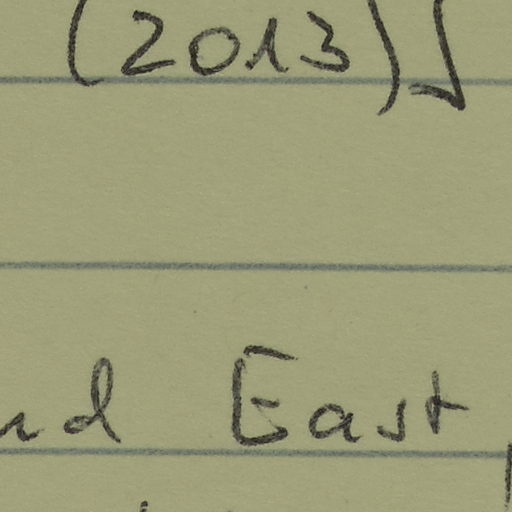 (2013)]
nd East